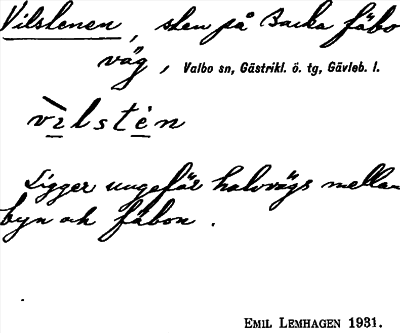 Vilstenen, sten på Backa fäbo
väg, Valbo sn, Gästrikl. ö. tg, Gävleb. l.
vìlstén
Ligger ungefär halvvägs mellan
byn och fäbon.
EMIL LEMHAGEN 1931.